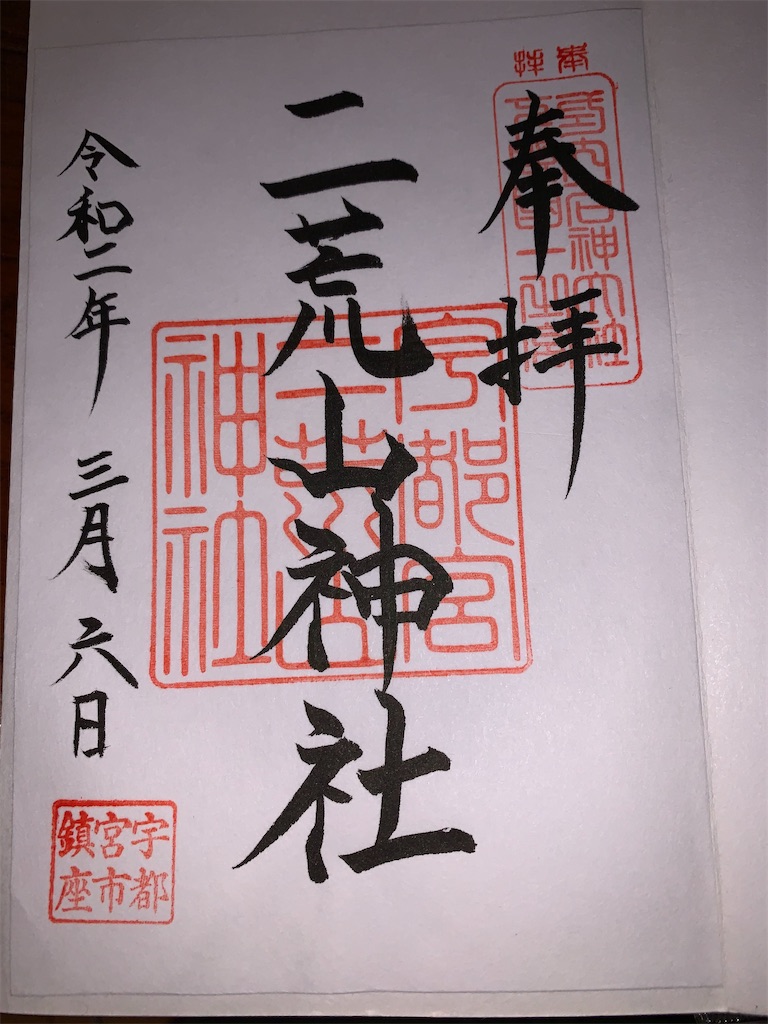 奉拝
奉拝
二荒山神社
宇都宮
二荒山
神社
令和二年 三月六日
宇都
宮市
鎮座